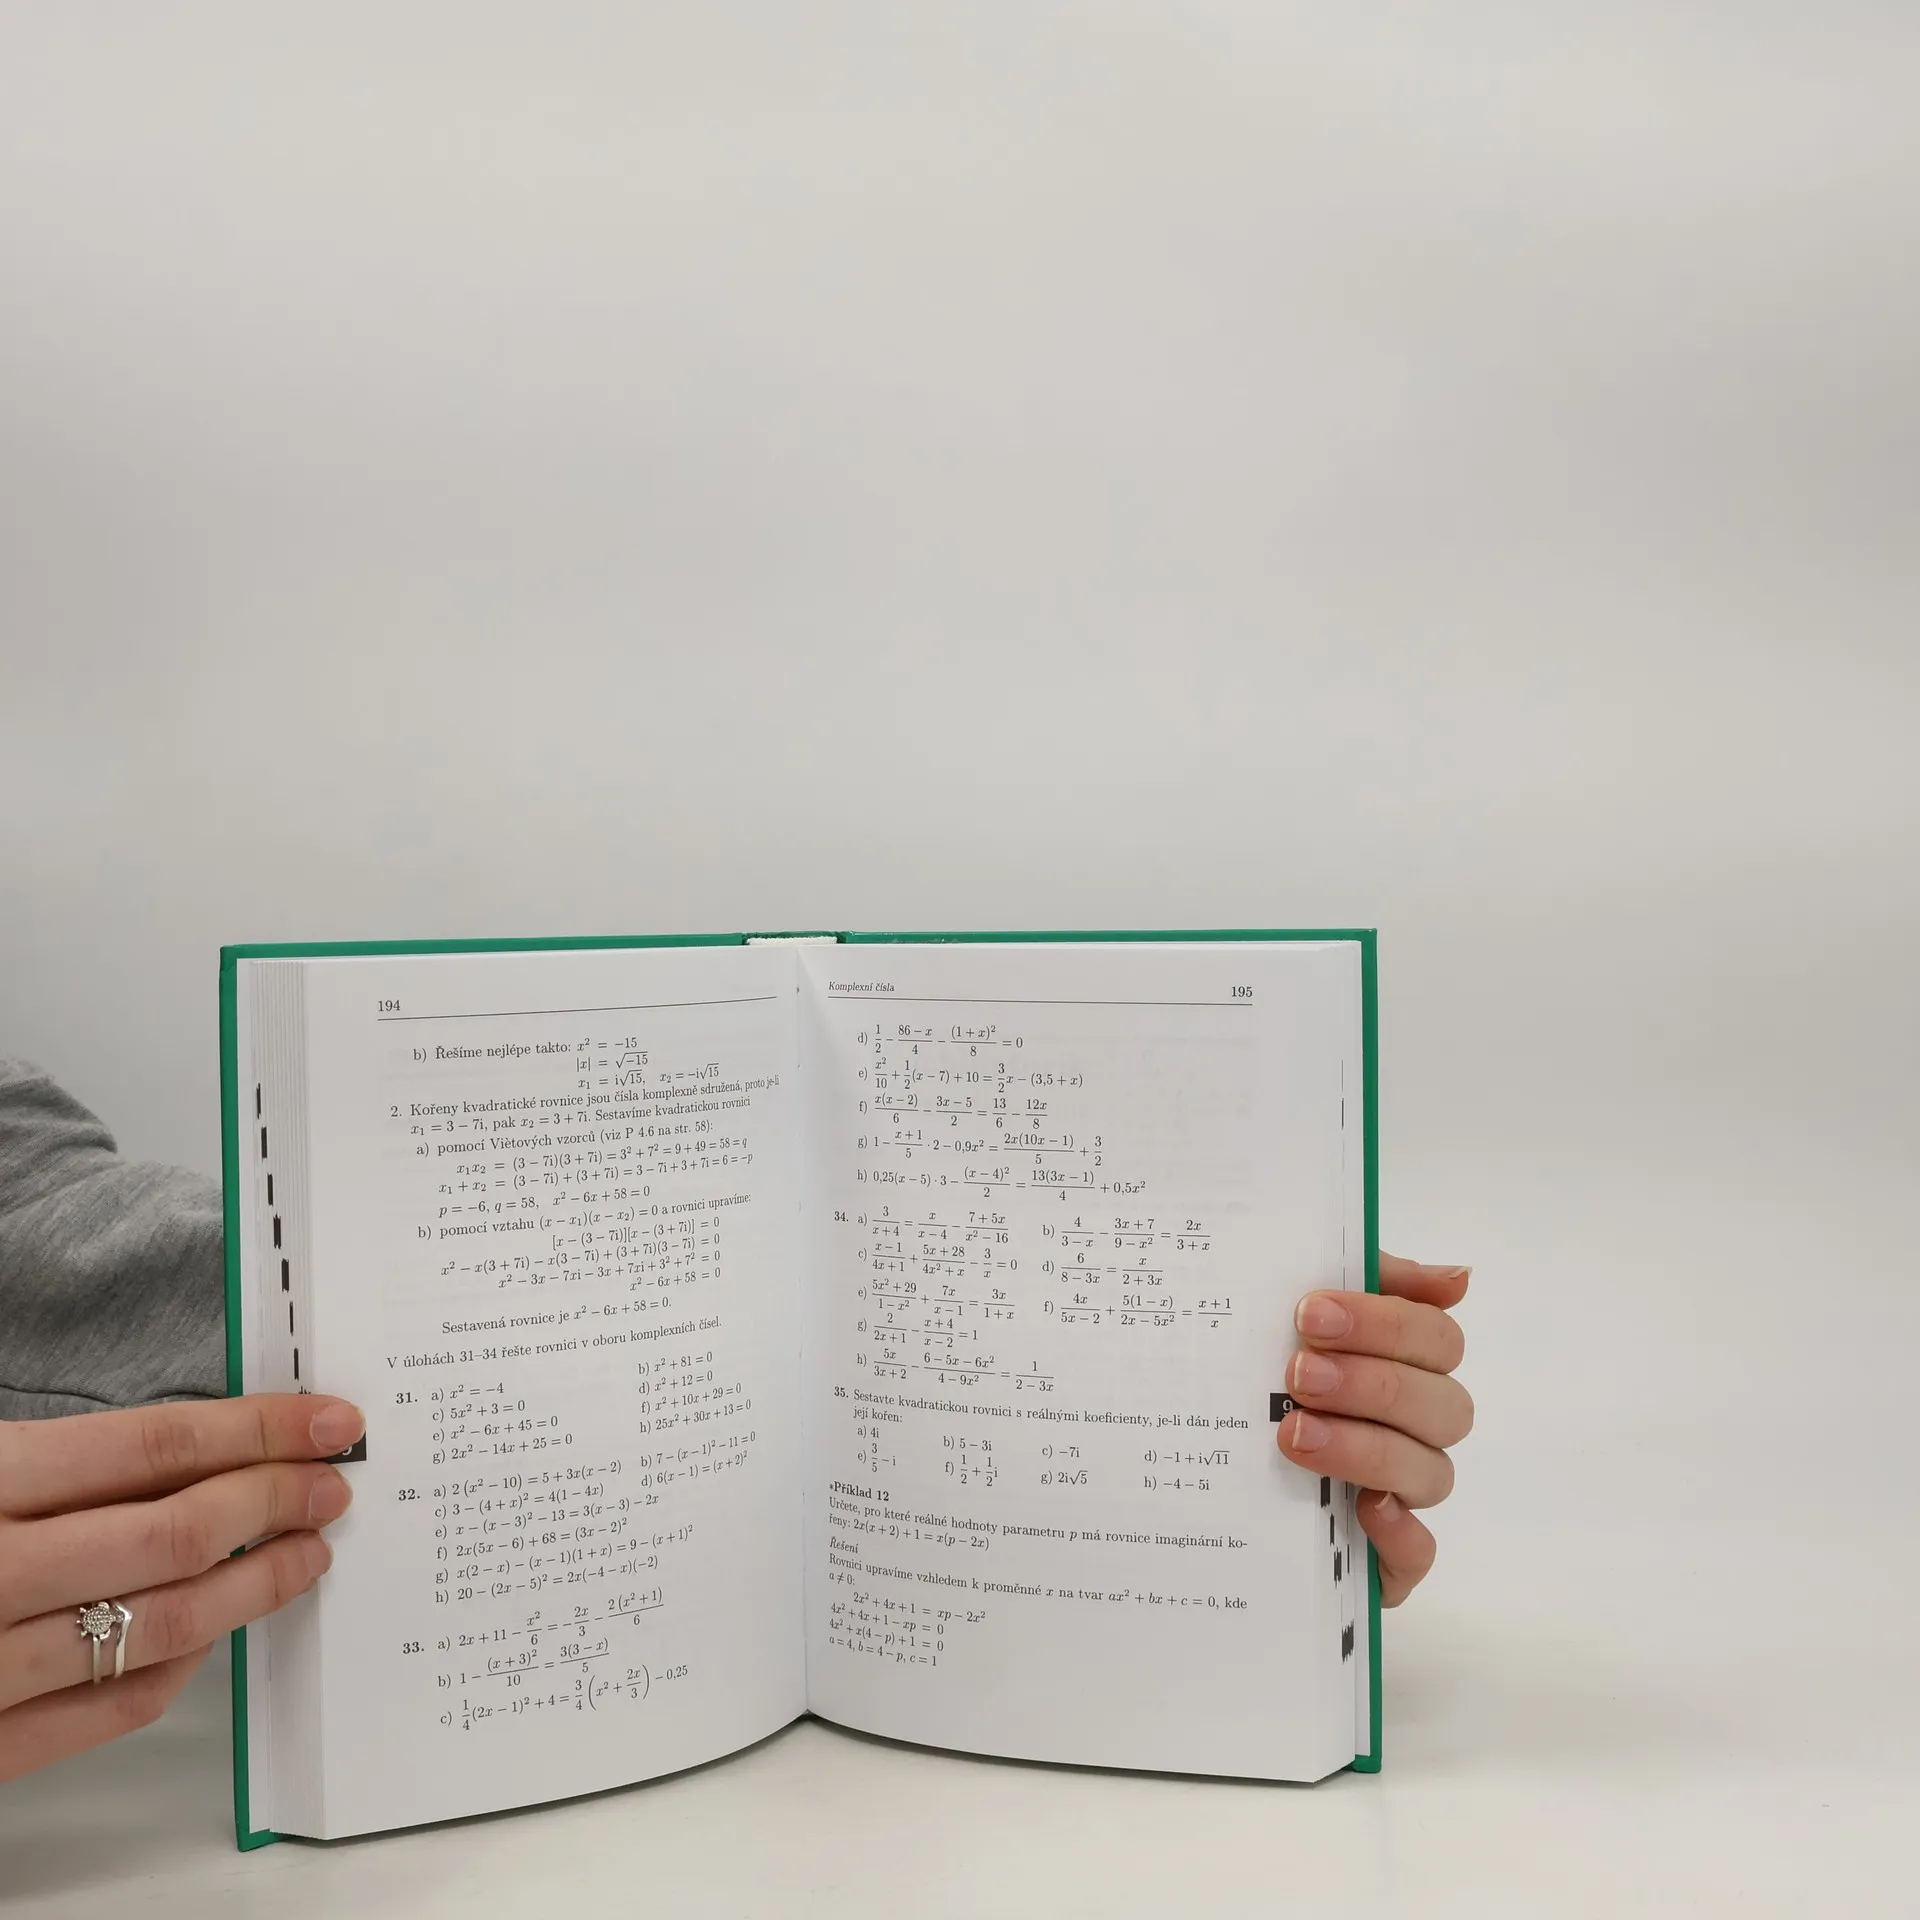 194
b) Řešíme nejlépe takto: x² = −15
|x| = √−15
x₁ = i√15, x₂ = −i√15
2. Kořeny kvadratické rovnice jsou čísla komplexně sdružená, proto je-li
x₁ = 3 − 7i, pak x₂ = 3 + 7i. Sestavíme kvadratickou rovnici
a) pomocí Viètových vzorců (viz P 4.6 na str. 58):
x₁x₂ = (3 − 7i)(3 + 7i) = 3² + 7² = 9 + 49 = 58 = q
x₁ + x₂ = (3 − 7i) + (3 + 7i) = 3 − 7i + 3 + 7i = 6 = −p
p = −6, q = 58, x² − 6x + 58 = 0
b) pomocí vztahu (x − x₁)(x − x₂) = 0 a rovnici upravíme:
[x − (3 − 7i)][x − (3 + 7i)] = 0
x² − x(3 + 7i) − x(3 − 7i) + (3 + 7i)(3 − 7i) = 0
x² − 3x − 7xi − 3x + 7xi + 3² + 7² = 0
x² − 6x + 58 = 0
Sestavená rovnice je x² − 6x + 58 = 0.
V úlohách 31–34 řešte rovnici v oboru komplexních čísel.
31. a) x² = −4 b) x² + 81 = 0
c) 5x² + 3 = 0 d) x² + 12 = 0
e) x² − 6x + 45 = 0 f) x² + 10x + 29 = 0
g) 2x² − 14x + 25 = 0 h) 25x² + 30x + 13 = 0
32. a) 2(x² − 10) = 5 + 3x(x − 2) b) 7 − (x − 1)² − 11 = 0
c) 3 − (4 + x)² = 4(1 − 4x) d) 6(x − 1) = (x + 2)²
e) x − (x − 3)² − 13 = 3(x − 3) − 2x
f) 2x(5x − 6) + 68 = (3x − 2)²
g) x(2 − x) − (x − 1)(1 + x) = 9 − (x + 1)²
h) 20 − (2x − 5)² = 2x(−4 − x)(−2)
33. a) 2x + 11 − x²/6 = −2x/3 − 2(x² + 1)/6
b) 1 − (x + 3)²/10 = 3(3 − x)/5
c) 1/4(2x − 1)² + 4 = 3/4(x² + 2x/3) − 0,25
Komplexní čísla 195
d) 1/2 − (86 − x)/4 − (1 + x)²/8 = 0
e) x²/10 + 1/2(x − 7) + 10 = 3/2x − (3,5 + x)
f) x(x − 2)/6 − (3x − 5)/2 = 13/6 − 12x/8
g) 1 − (x + 1)/5 · 2 − 0,9x² = 2x(10x − 1)/5 + 3/2
h) 0,25(x − 5) · 3 − (x − 4)²/2 = 13(3x − 1)/4 + 0,5x²
34. a) 3/(x + 4) = x/(x − 4) − (7 + 5x)/(x² − 16) b) 4/(3 − x) − (3x + 7)/(9 − x²) = 2x/(3 + x)
c) (x − 1)/(4x + 1) + (5x + 28)/(4x² + x) − 3/x = 0 d) 6/(8 − 3x) = x/(2 + 3x)
e) (5x² + 29)/(1 − x²) + 7x/(x − 1) = 3x/(1 + x) f) 4x/(5x − 2) + 5(1 − x)/(2x − 5x²) = (x + 1)/x
g) 2/(2x + 1) − (x + 4)/(x − 2) = 1
h) 5x/(3x + 2) − (6 − 5x − 6x²)/(4 − 9x²) = 1/(2 − 3x)
35. Sestavte kvadratickou rovnici s reálnými koeficienty, je-li dán jeden
její kořen:
a) 4i b) 5 − 3i c) −7i d) −1 + i√11
e) 3/5 − i f) 1/2 + 1/2i g) 2i√5 h) −4 − 5i
*Příklad 12
Určete, pro které reálné hodnoty parametru p má rovnice imaginární ko-
řeny: 2x(x + 2) + 1 = x(p − 2x)
Řešení
Rovnici upravíme vzhledem k proměnné x na tvar ax² + bx + c = 0, kde
a ≠ 0:
2x² + 4x + 1 = xp − 2x²
4x² + 4x + 1 − xp = 0
4x² + x(4 − p) + 1 = 0
a = 4, b = 4 − p, c = 1
9